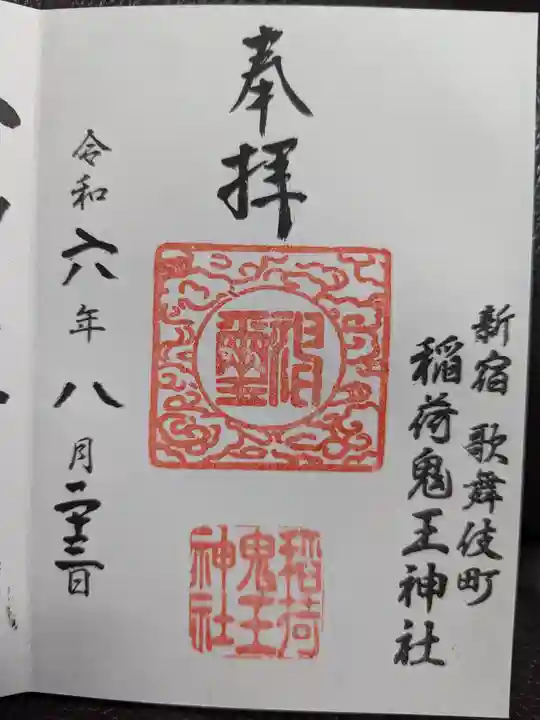 新宿 歌舞伎町
稲荷鬼王神社
奉拝
稲荷
鬼王
神社
令和六年八月二十三日